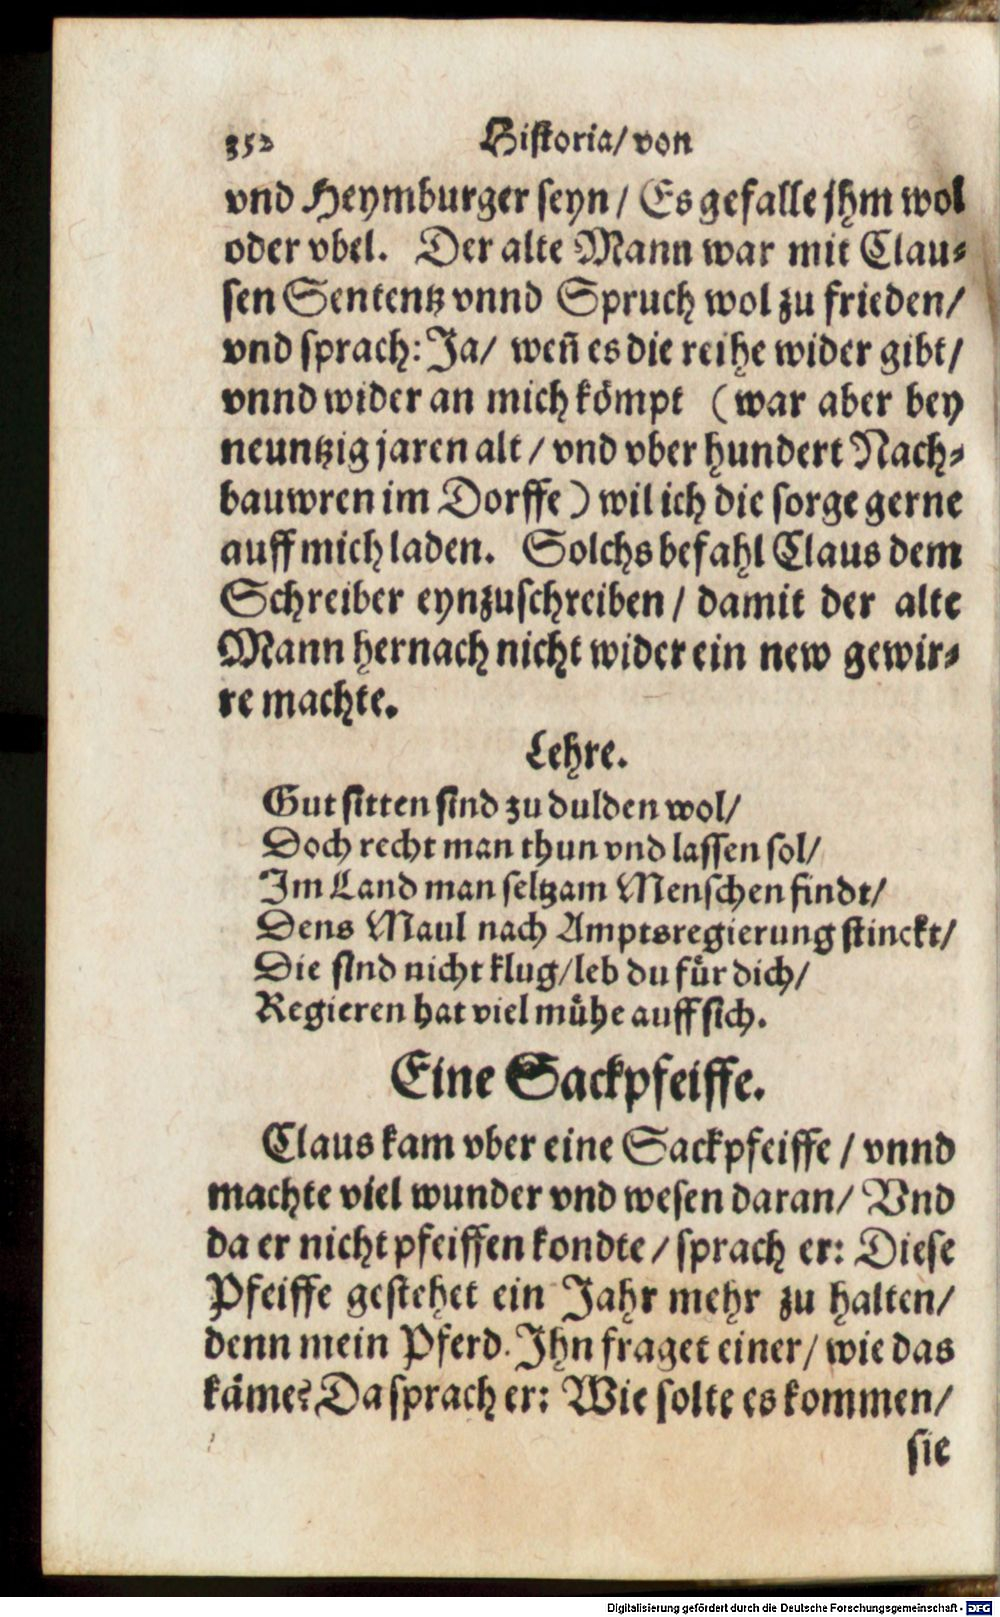 352 Historia/ von
vnd Heymburger seyn / Es gefalle jhm wol
oder vbel. Der alte Mann war mit Clau-
sen Sententz vnnd Spruch wol zu frieden/
vnd sprach: Ja/ weñ es die reihe wider gibt/
vnnd wider an mich kömpt (war aber bey
neuntzig jaren alt / vnd vber hundert Nach-
bauwren im Dorffe) wil ich die sorge gerne
auff mich laden. Solchs befahl Claus dem
Schreiber eynzuschreiben / damit der alte
Mann hernach nicht wider ein new gewir-
re machte.
Lehre.
Gut sitten sind zu dulden wol/
Doch recht man thun vnd lassen sol/
Im Land man seltzam Menschen findt/
Dens Maul nach Amptsregierung stinckt/
Die sind nicht klug/ leb du für dich/
Regieren hat viel mühe auff sich.
Eine Sackpfeiffe.
Claus kam vber eine Sackpfeiffe / vnnd
machte viel wunder vnd wesen daran/ Vnd
da er nicht pfeiffen kondte / sprach er: Diese
Pfeiffe gestehet ein Jahr mehr zu halten/
denn mein Pferd. Ihn fraget einer/ wie das
käme? Da sprach er: Wie solte es kommen/
sie
Digitalisierung gefördert durch die Deutsche Forschungsgemeinschaft - DFG